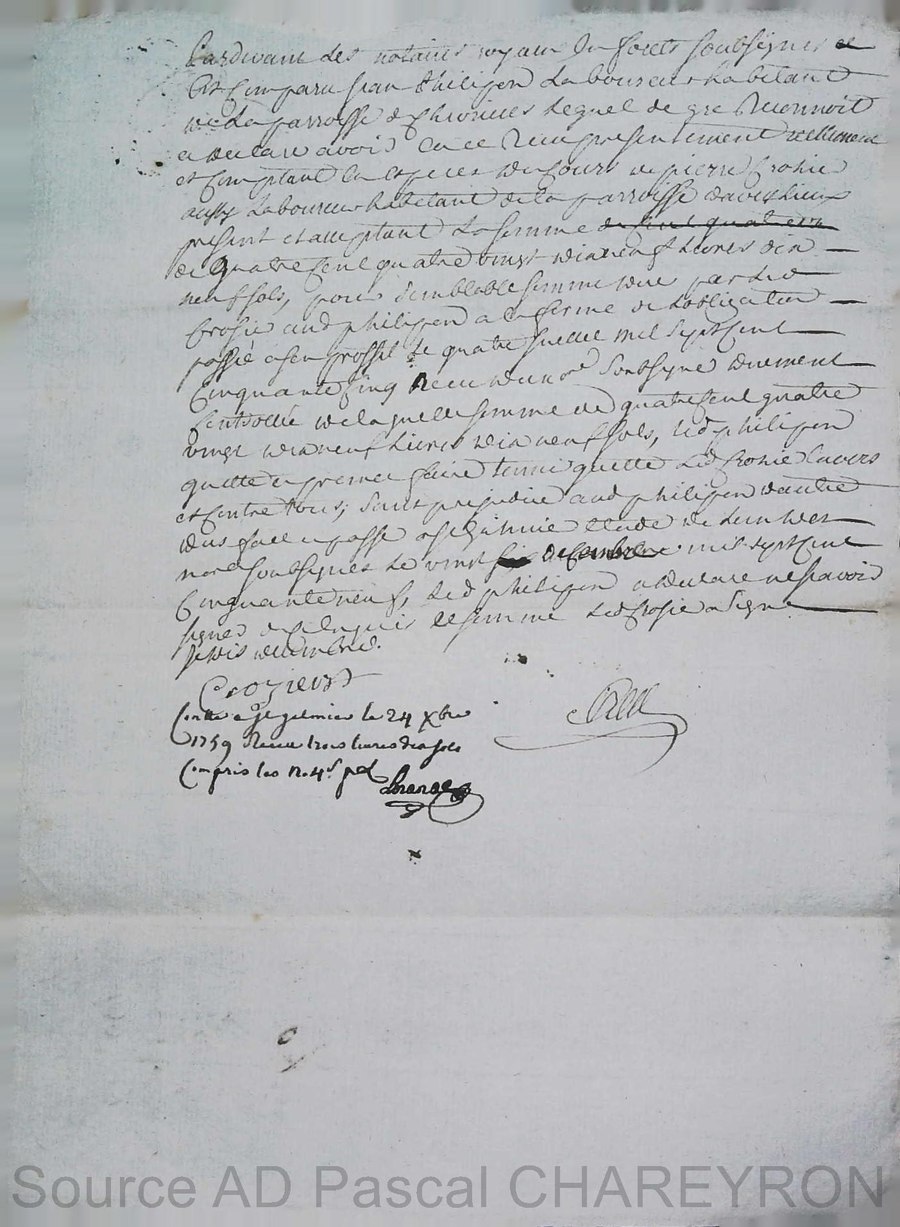 Pardevant les notaires royaux En forets soubsignés et
Est Comparu Jean Philipon Laboureur habitant
de La parroisse de lequel de gré Reconnoit
a declaré avoir Eu et Reçu presentement réellement
et Comptant En especes de Cours de pierre Crozier
aussy Laboureur habitant de la parroisse
present et acceptant La somme de Cent quatre
de Quatre Cent quatre vingt dix neuf Livres dix
neuf sols, pour semblable somme due par led
Crozier aud philipon a la forme de Lobligation
passée a son proffit le quatre Juillet mil sept Cent
Cinquante Cinq Receu du nore soubsigné duement
Controllé de laquelle somme de quatre Cent quatre
vingt dix neuf Livres dix neuf sols, led philipon
quitte a promet faire tenir quitte led Crozier Envers
et Contre tous, sans prejudice aud philipon dautre
dus fait et passé a St etude de Lun des
nores soubsignés le vingt decembre mil sept Cent
Cinquante neuf, led philipon a declaré ne scavoir
signer de ce Enquis et sommé led Crozier a signé
Je dis decembre.
Crozier
Contlé a St galmier le 24 Xbre
1759 Receu trois livres dix sols
Compris les 4s pd